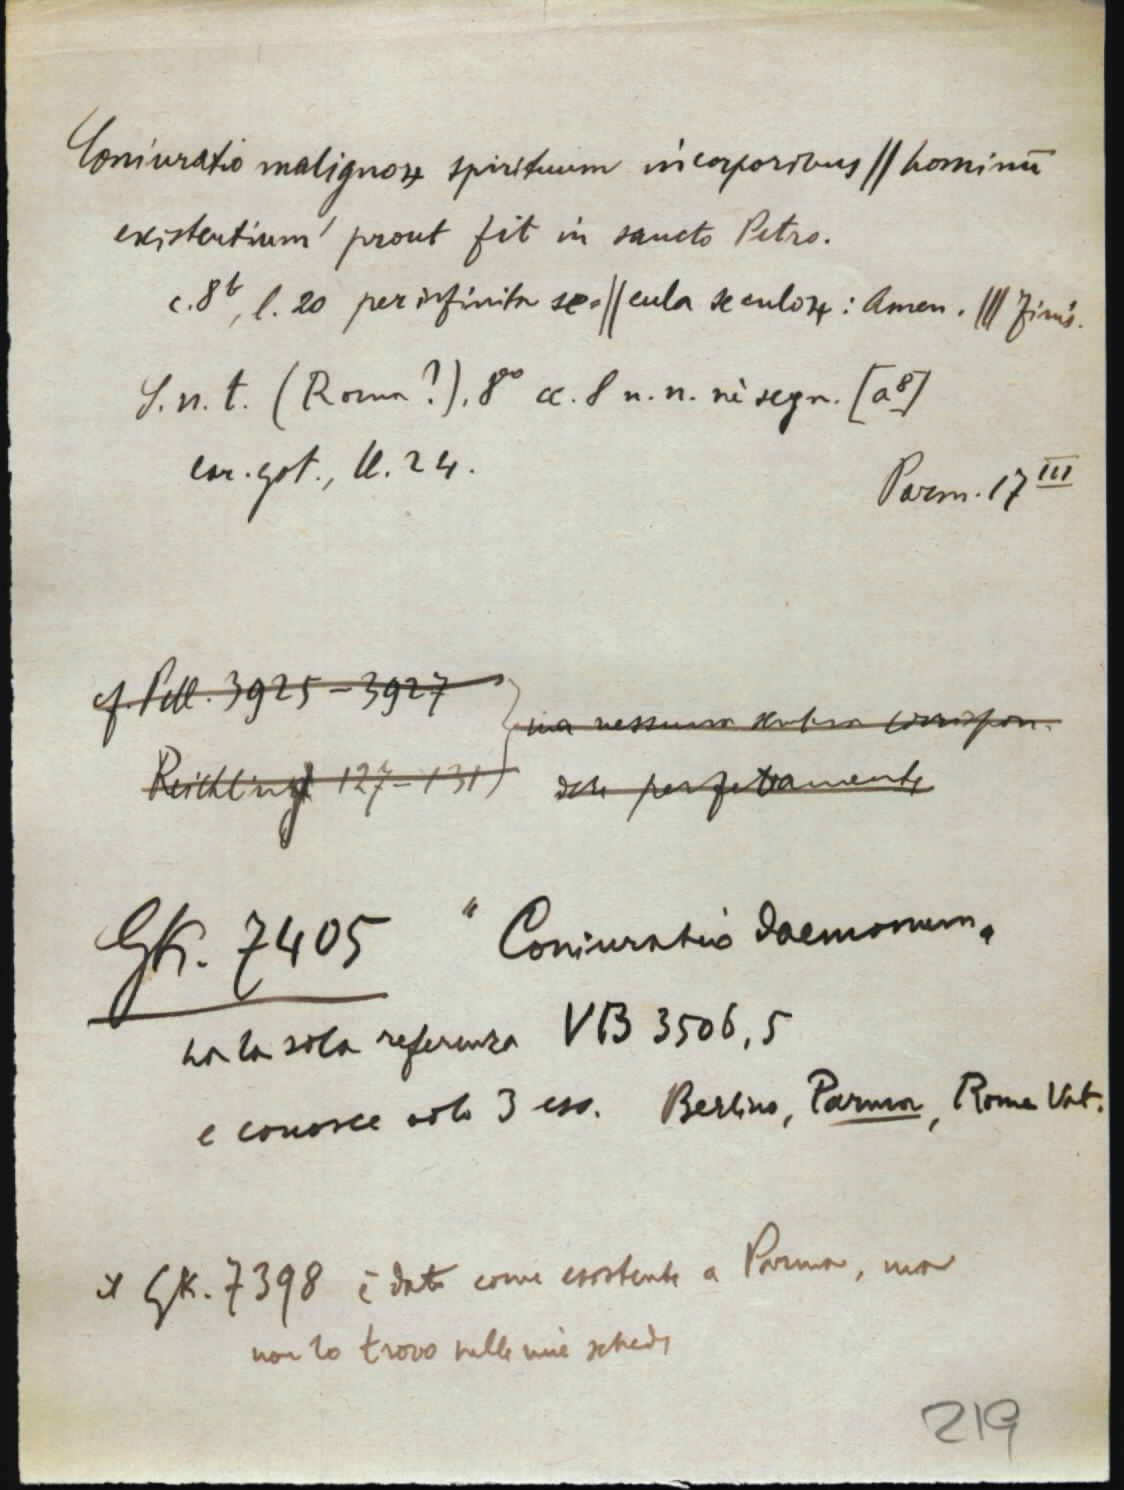 Coniuratio malignoꝝ spirituum incorporibus || hominū
existentium prout fit in sancto Petro.
c. 8b, l. 20 per infinita se=||cula seculoꝝ: Amen. ||| Finis.
S. n. t. (Roma ?). 8° cc. 8 n. n. nè segn. [a8]
car. got., ll. 24.
Parm. 17 III
cf. Pell. 3925 – 3927
ma nessuna sembra corrispon-
Reichling 127 – 131
dere perfettamente
GK. 7405 "Coniuratio daemonum"
ha la sola referenza VB 3506, 5
e conosce solo 3 es. Berlino, Parma, Roma Vat.
il GK. 7398 è dato come esistente a Parma, ma
non lo trovo nelle mie schede
219